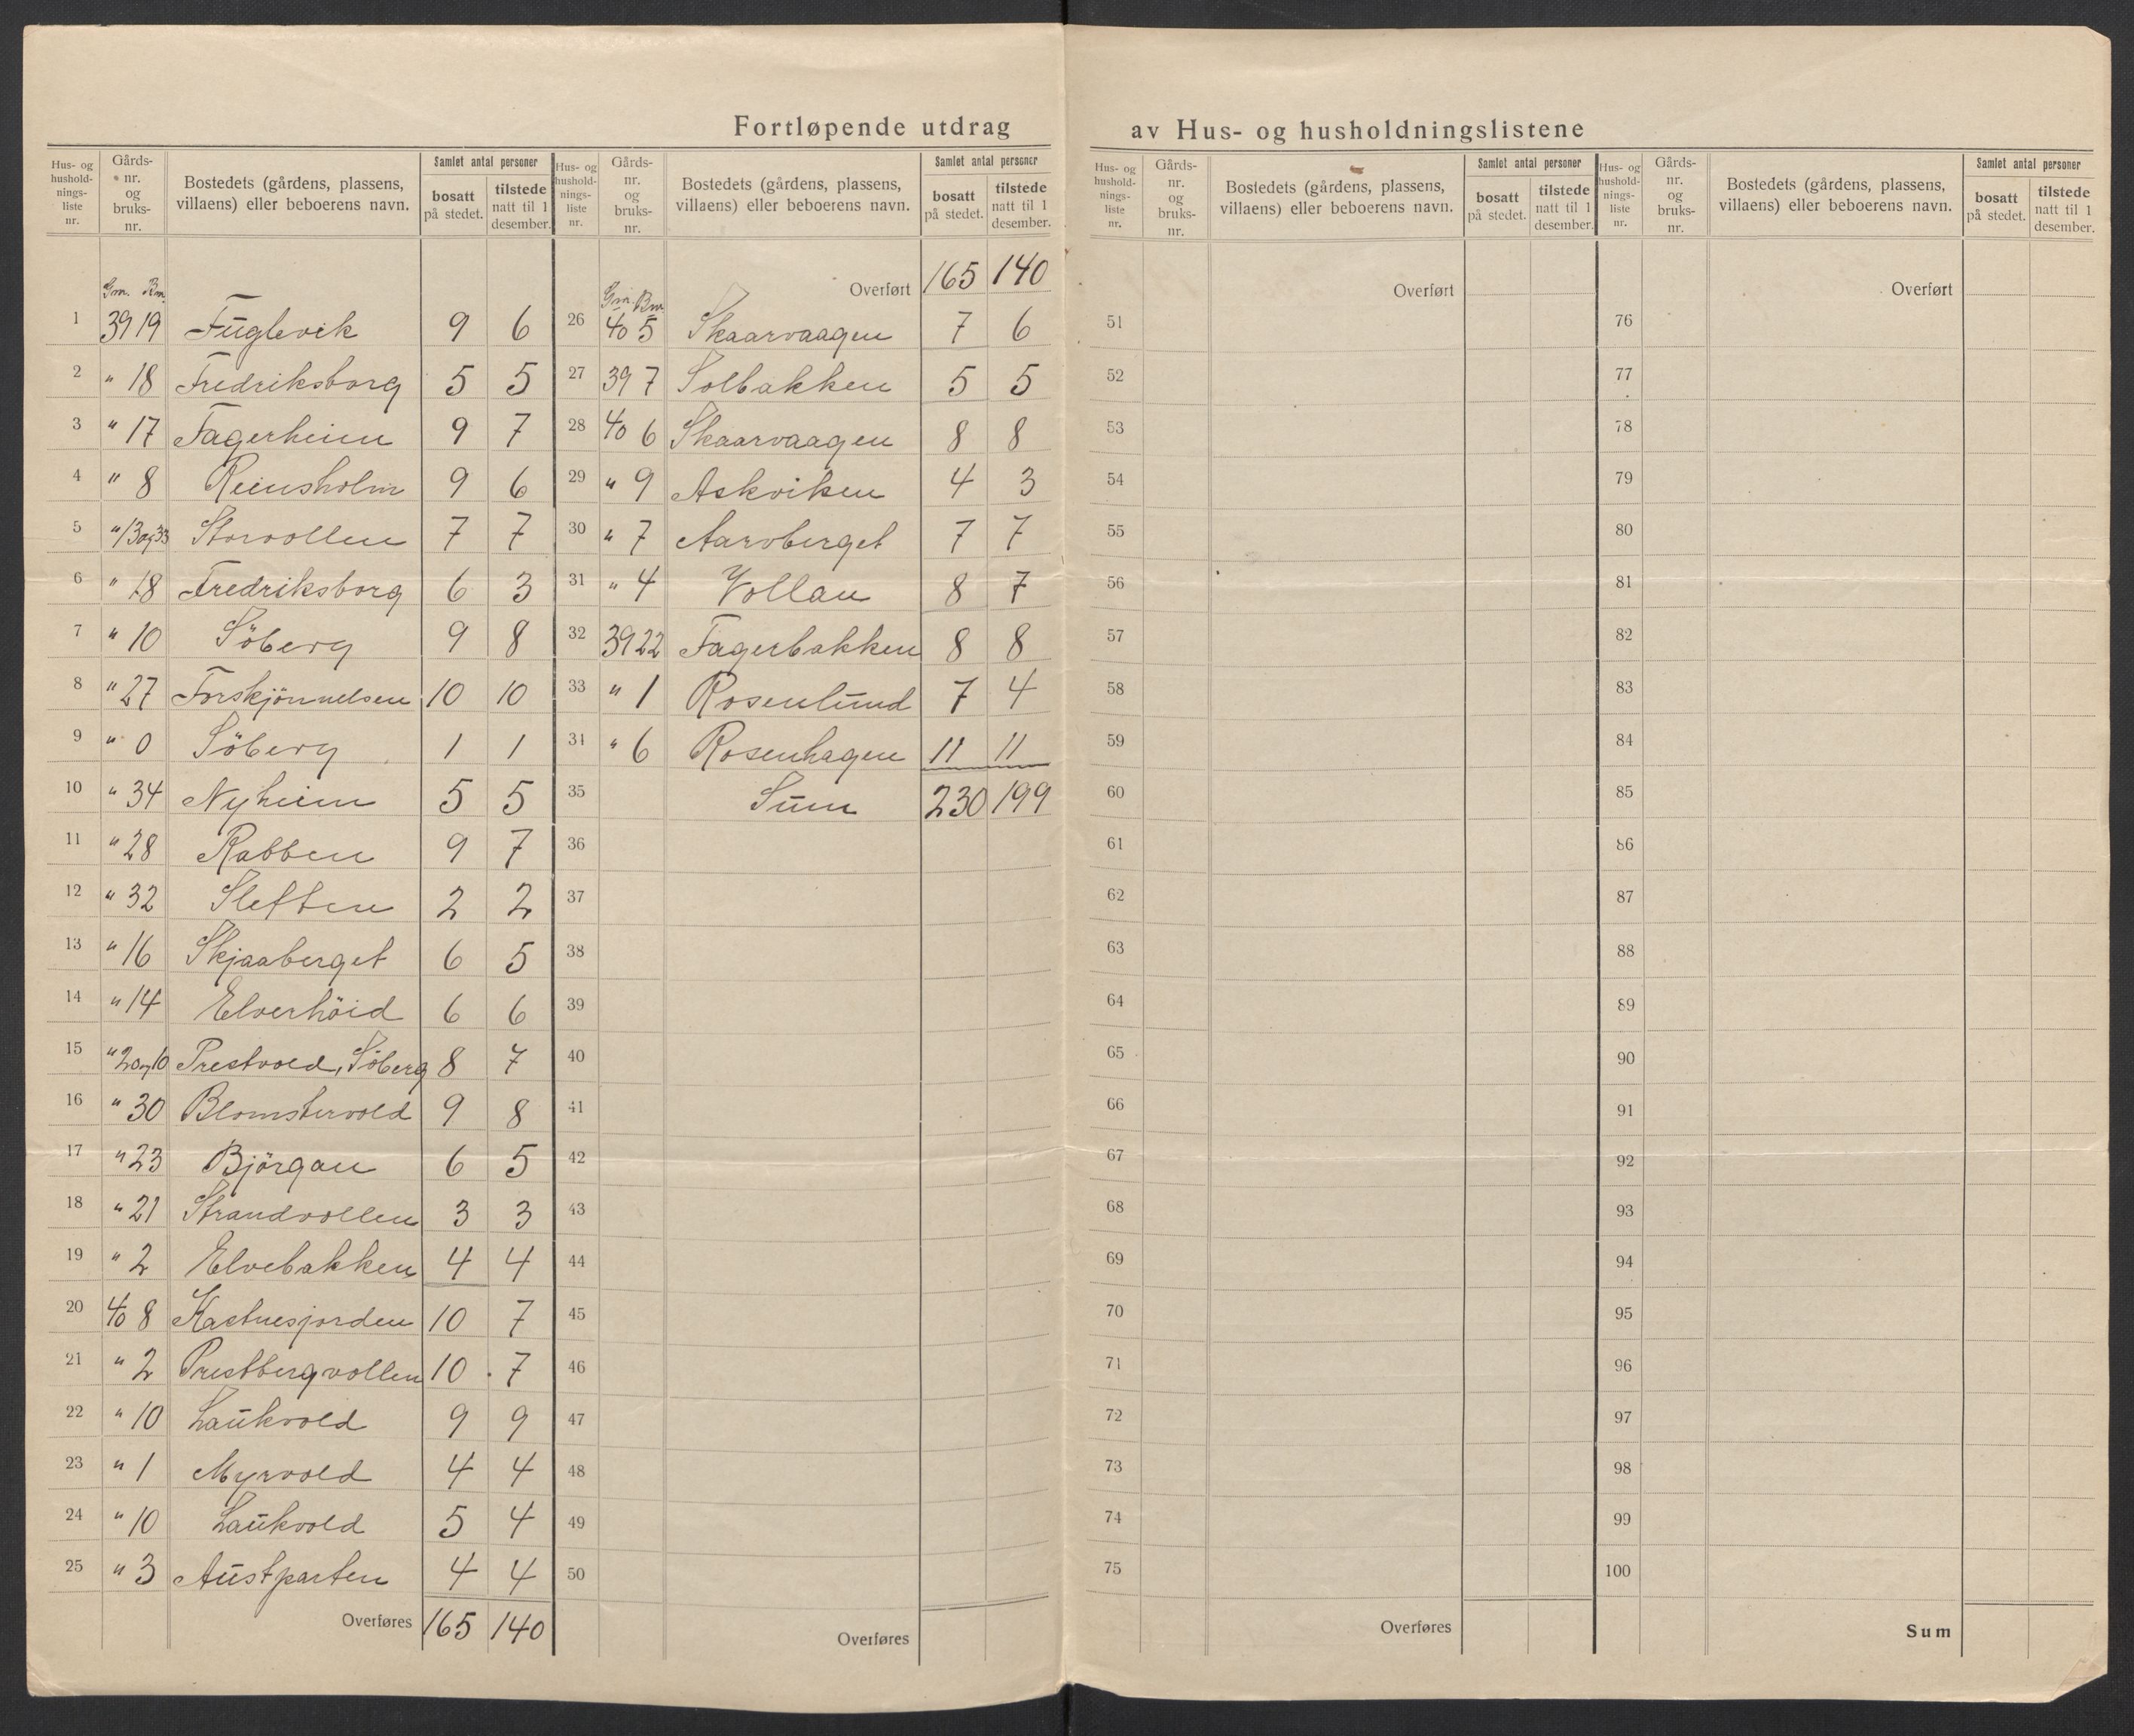 Fortløpende utdrag av Hus- og husholdningslistene
Hus- og hushold-nings-liste nr. Gårds-nr. og bruks-nr. Bostedets (gårdens, plassens, villaens) eller beboerens navn. Samlet antal personer bosatt på stedet. tilstede natt til 1 desember.
Gnr. Bnr.
1 39 19 Fuglevik 9 6
2 " 18 Fredriksborg 5 5
3 " 17 Fagerheim 9 7
4 " 8 Reinsholm 9 6
5 " 13og33 Storvollen 7 7
6 " 18 Fredriksborg 6 3
7 " 10 Söberg 9 8
8 " 27 Forskjönnelsen 10 10
9 " 0 Söberg 1 1
10 " 34 Nyheim 5 5
11 " 28 Rabben 9 7
12 " 32 Sletten 2 2
13 " 16 Skjaaberget 6 5
14 " 14 Elverhöid 6 6
15 " 2og10 Prestvold, Söberg 8 7
16 " 30 Blomstervold 9 8
17 " 23 Björgan 6 5
18 " 21 Strandvollen 3 3
19 " 2 Elvebakken 4 4
20 40 8 Kastnesjorden 10 7
21 " 2 Prestbergvollen 10 7
22 " 10 Laukvold 9 9
23 " 1 Myrvold 4 4
24 " 10 Laukvold 5 4
25 " 3 Austparten 4 4
Overføres 165 140
Hus- og hushold-nings-liste nr. Gårds-nr. og bruks-nr. Bostedets (gårdens, plassens, villaens) eller beboerens navn. Samlet antal personer bosatt på stedet. tilstede natt til 1 desember.
Overført 165 140
Gnr. Bnr.
26 40 5 Skaarvaagen 7 6
27 39 7 Solbakken 5 5
28 40 6 Skaarvaagen 8 8
29 " 9 Askviken 4 3
30 " 7 Aarvberget 7 7
31 " 4 Vollan 8 7
32 39 22 Fagerbakken 8 8
33 " 1 Rosenlund 7 4
34 " 6 Rosenhagen 11 11
35 Sum 230 199
36
37
38
39
40
41
42
43
44
45
46
47
48
49
50
Overføres
Hus- og hushold-nings-liste nr. Gårds-nr. og bruks-nr. Bostedets (gårdens, plassens, villaens) eller beboerens navn. Samlet antal personer bosatt på stedet. tilstede natt til 1 desember.
Overført
51
52
53
54
55
56
57
58
59
60
61
62
63
64
65
66
67
68
69
70
71
72
73
74
75
Overføres
Hus- og hushold-nings-liste nr. Gårds-nr. og bruks-nr. Bostedets (gårdens, plassens, villaens) eller beboerens navn. Samlet antal personer bosatt på stedet. tilstede natt til 1 desember.
Overført
76
77
78
79
80
81
82
83
84
85
86
87
88
89
90
91
92
93
94
95
96
97
98
99
100
Sum